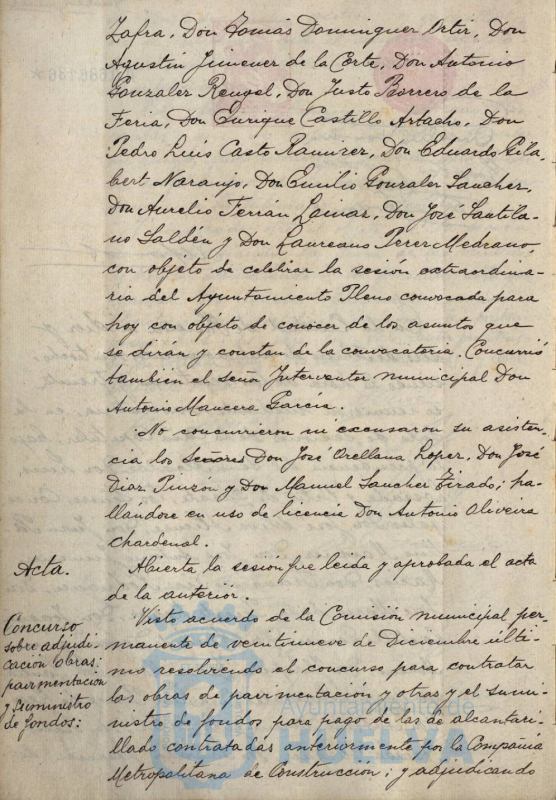 Zafra, Don Tomás Dominguez Ortiz, Don
Agustin Jimenez de la Corte, Don Antonio
Gonzalez Rengel, Don Justo Borrero de la
Feria, Don Enrique Castillo Artacho, Don
Pedro Luis Casto Ramirez, Don Eduardo Gila
bert Naranjo, Don Emilio Gonzalez Sanchez,
Don Aurelio Ferrán Lainar, Don José Santila-
no Saldén y Don Laureano Perez Medrano,
con objeto de celebrar la sesión extraordina-
ria del Ayuntamiento Pleno convocada para
hoy con objeto de conocer de los asuntos que
se dirán y constan de la convocatoria. Concurrió
también el señor Interventor municipal Don
Antonio Mancera García.
No concurrieron ni excusaron su asisten-
cia los Señores Don José Orellana Lopez, Don José
Diaz Pinzón y Don Manuel Sanchez Tirado; ha-
llándose en uso de licencia Don Antonio Oliveira
Chardenal.
Acta.
Abierta la sesión fué leida y aprobada el acta
de la anterior.
Concurso
sobre adjudi-
cación obras:
pavimentacion
y suministro
de fondos:
Visto acuerdo de la Comisión municipal per-
manente de veintinueve de Diciembre últi-
mo resolviendo el concurso para contratar
las obras de pavimentación y otras y el sumi-
nistro de fondos para pago de las de alcantari-
llado contratadas anteriormente por la Compañia
Metropolitana de Construcción; y adjudicando
Ayuntamiento de
HUELVA